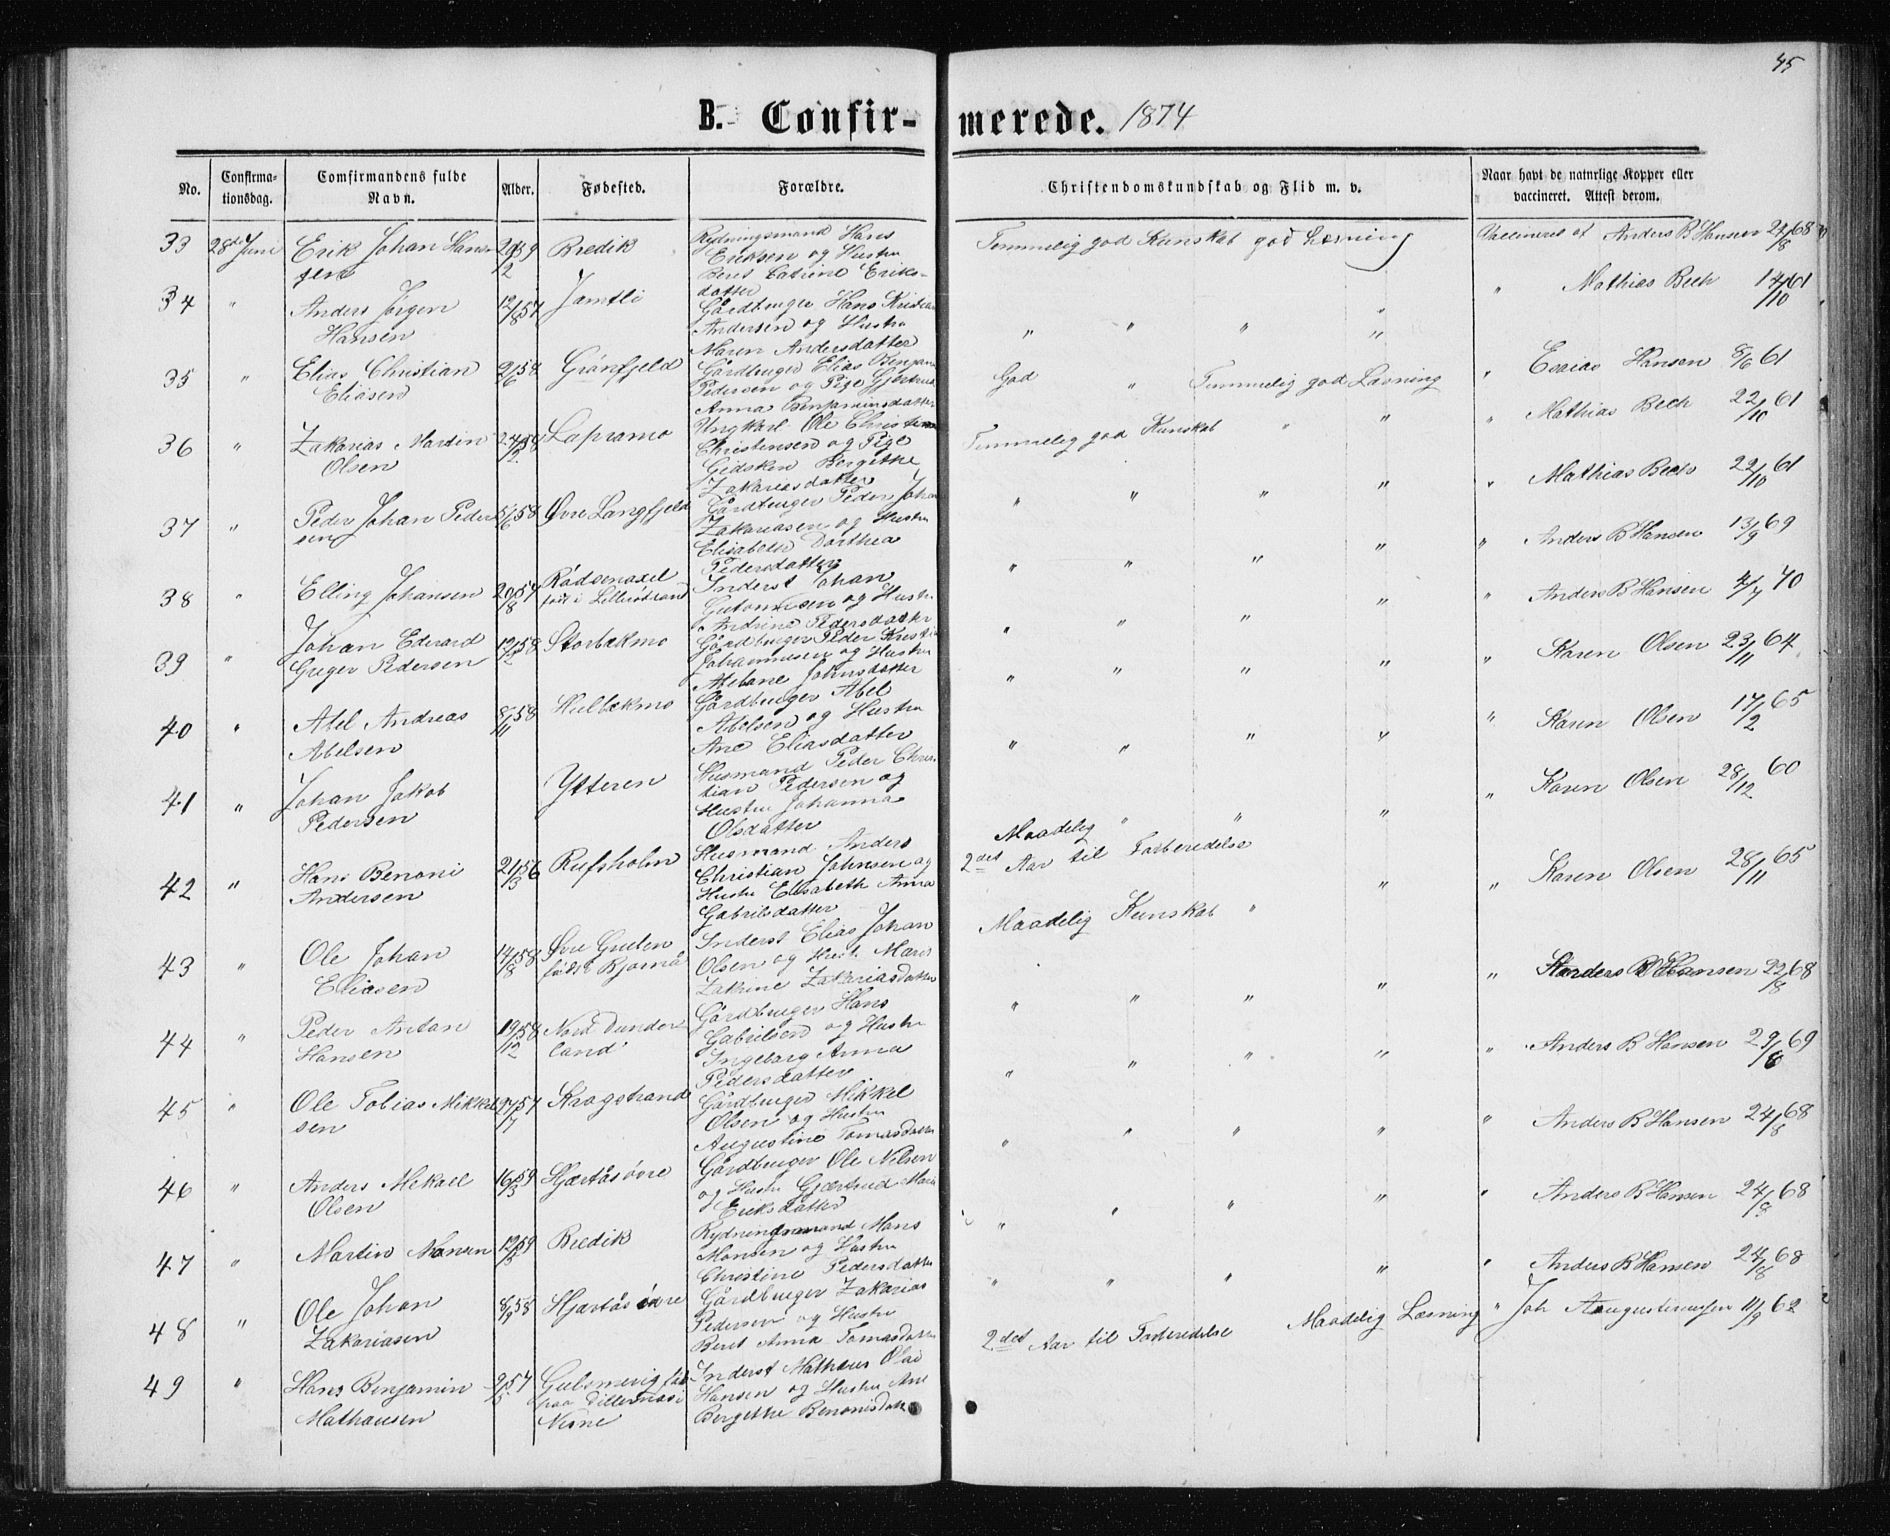 45
B. Confirmerede. 1874
No.
Confirmationsdag.
Comfirmandens fulde Navn.
Alder.
Fødested.
Forældre.
Christendomskundskab og Flid m. v.
Naar havt de naturlige Kopper eller vaccineret. Attest derom.
33 28de Juni Erik Johan Han- 20/2 59 Bredik Rydningsmand Hans Temmelig god Kunskab god Læsning Vaccineret af Anders B Hansen 22/8 68
sen Eriksen og Hustru
Beret Catrine Eriks-
datter
34 " Anders Jørgen 12/8 57 Jamtli Gårdbruger Hans Kristian " " " " " Mathias Bech 14/10 61
Hansen Andersen og Hustru
Maren Andersdatter
35 " Elias Christian 9/6 58 Grønfjeld Gårdbruger Elias Benjamin God " Temmelig god Læsning " Esaias Hansen 8/6 61
Eliasen Pedersen og Pige Gjertrud
Anna Benjaminsdatter
36 " Zakarias Martin 24/2 58 Lapramo Ungkarl Ole Christian Temmelig god Kunskab " " " Mathias Bech 22/10 61
Olsen Christensen og Pige
Gidsken Bergethe
Zakariasdatter
37 " Peder Johan Peder- 5/6 58 Øvre Langfjeld Gårdbruger Peder Johan " " " " " Mathias Bech 22/10 61
sen Zakariasen og Hustru
Elisabeth Dorthea
Pedersdatter
38 " Elling Johansen 20/8 57 Rødsenaxel Inderst Johan " " " " " Anders B Hansen 13/9 69
født i Lillestrand Gutormsen og Hustr
Andrine Pedersdatter
39 " Johan Edevard 12/2 58 Storbækmo Gårdbruger Peder Kristi " " " " " Anders B Hansen 4/7 70
Greger Pedersen Johannesen og Hustru
Johnsdatter
40 " Abel Andreas 8/11 58 Hulbækmo Gårdbruger Abel " " " " " Karen Olsen 23/11 64
Abelsen Abelsen og Hustru
Ane Eliasdatter
41 " Johan Jakob Ytteren Husmand Peder Chris- " " " " " Karen Olsen 17/2 65
Pedersen tian Pedersen og
Hustru Johanna
Olsdatter
42 " Hans Benoni 21/3 56 Rufsholm Husmand Anders Maadelig " " " " Karen Olsen 28/12 60
Andersen Christian Johnsen og 2det Aar til Forberedelse
Hustr Elisabeth Anna
Gabrielsdatter
43 " Ole Johan 14/8 58 Øvre Gruben Inderst Elias Johan Maadelig Kunskab " " " Karen Olsen 28/11 65
Eliasen født Bjornå Olsen og Hust. Maren
Zakrine Zakariasdatter
44 " Peder Antan 19/12 58 Nord Dunder- Gårdbruger Hans " " " " " Anders B Hansen 22/8 68
Hansen land Gabrielsen og Hustru
Ingeborg Anna
Pedersdatter
45 " Ole Tobias Mikkel- 27/7 57 Krogstrand Gårdbruger Mikkel " " " " " Anders B Hansen 29/8 69
sen Olsen og Hustru
Augustine Tomasdatter
46 " Anders Mikael 16/3 59 Hjartås øvre Gårdbruger Ole Nilsen " " " " " Anders B Hansen 24/8 68
Olsen og Hustr Gjærtrud Marie
Eriksdatter
47 " Martin Hansen 12/3 59 Bredik Rydningsmand Hans " " " " " Anders B Hansen 24/8 68
Hansen og Hustru
Christine Pedersdatter
48 " Ole Johan 8/9 58 Hjartås øvre Gårdbruger Zakarias " " " " " Anders B Hansen 24/8 68
Zakariasen Pedersen og Hustru
Beret Anna Tomasdatter
49 " Hans Benjamin 2/5 57 Inderst Mathæus Olai 2det Aar til Forberedelse Maadelig Læsning " Joh Augustinussen 11/9 62
Mathausen Nesne Hansen og Hustru Ane
Bergethe Benonisdatt